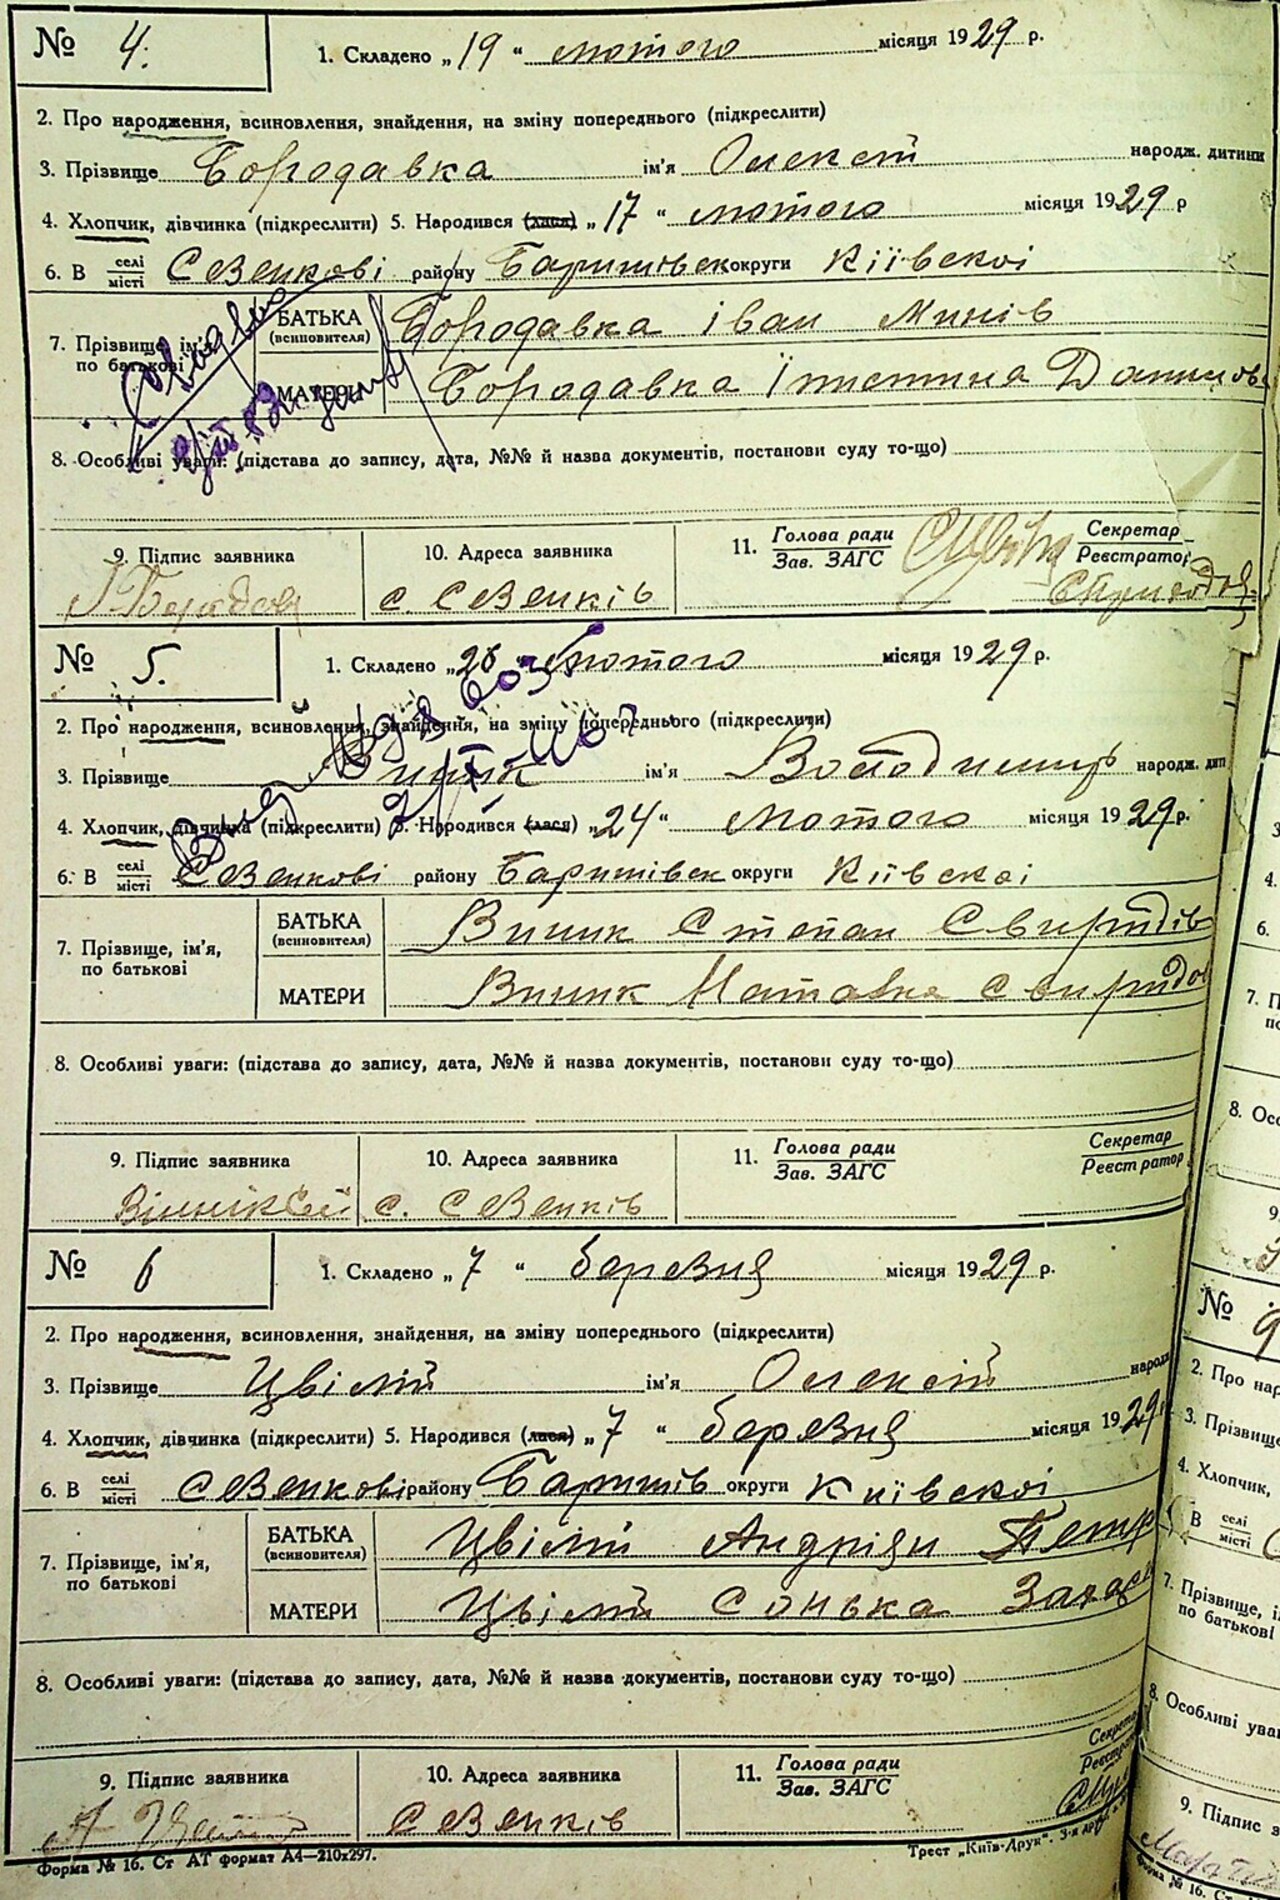 № 4. 1. Складено „19“ лютого місяця 1929 р.
2. Про народження, всиновлення, знайдення, на зміну попереднього (підкреслити)
3. Прізвище Бородавка ім'я Олексій народж. дитини
4. Хлопчик, дівчинка (підкреслити) 5. Народився (лася) „17“ лютого місяця 1929 р
6. В селі/місті Севенкові району Баришівськ округи Київської
7. Прізвище, ім'я, по батькові БАТЬКА (всиновителя) Бородавка Іван Минів
МАТЕРИ Бородавка Данилов
8. Особливі уваги: (підстава до запису, дата, №№ й назва документів, постанови суду то-що)
9. Підпис заявника 10. Адреса заявника 11. Голова ради/Зав. ЗАГС Секретар/Реєстратор
с. Севенків
№ 5. 1. Складено „26“ лютого місяця 1929 р.
2. Про народження, всиновлення, знайдення, на зміну попереднього (підкреслити)
3. Прізвище Виник ім'я Володимир народж. дит
4. Хлопчик, дівчинка (підкреслити) 5. Народився (лася) „24“ лютого місяця 1929 р.
6. В селі/місті Севенкові району Баришівськ округи Київської
7. Прізвище, ім'я, по батькові БАТЬКА (всиновителя) Виник Степан Свиридів
МАТЕРИ Виник Наталка Свиридов
8. Особливі уваги: (підстава до запису, дата, №№ й назва документів, постанови суду то-що)
9. Підпис заявника 10. Адреса заявника 11. Голова ради/Зав. ЗАГС Секретар/Реєстратор
с. Севенків
№ 6 1. Складено „7“ березня місяця 1929 р.
2. Про народження, всиновлення, знайдення, на зміну попереднього (підкреслити)
3. Прізвище Цвілій ім'я Олексій народж
4. Хлопчик, дівчинка (підкреслити) 5. Народився (лася) „7“ березня місяця 1929 р
6. В селі/місті Севенкові району Баришів округи Київської
7. Прізвище, ім'я, по батькові БАТЬКА (всиновителя) Цвілій Андріян Петр
МАТЕРИ Цвілій Сонька Захар
8. Особливі уваги: (підстава до запису, дата, №№ й назва документів, постанови суду то-що)
9. Підпис заявника 10. Адреса заявника 11. Голова ради/Зав. ЗАГС
Севенків
Форма № 16. Ст АТ формат А4—210х297. Трест „Київ-Друк“.